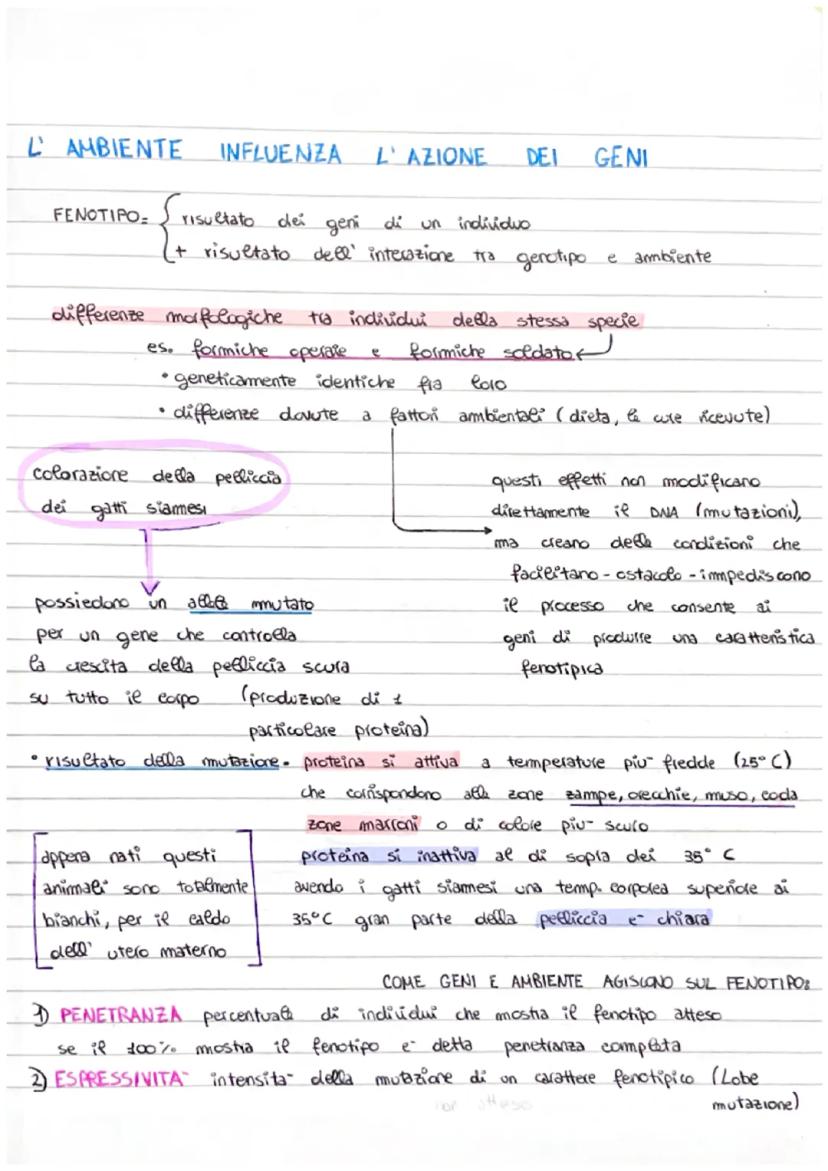 L' AMBIENTE INFLUENZA L'AZIONE DEI GENI
FENOTIPO= { risultato dei geni di un individuo
+ risultato dell' interazione tra genotipo e ambiente
differenze morfologiche tra individui della stessa specie
es. formiche operaie e formiche soldato
• geneticamente identiche fra loro
• differenze dovute a fattori ambientali (dieta, le cure ricevute)
colorazione della pelliccia
dei gatti siamesi
questi effetti non modificano
direttamente il DNA (mutazioni),
ma creano delle condizioni che
facilitano - ostacolo - impediscono
il processo che consente ai
geni di produrre una caratteristica
fenotipica
possiedono un allele mutato
per un gene che controlla
la crescita della pelliccia scura
su tutto il corpo (produzione di 1
particolare proteina)
• risultato della mutazione. proteina si attiva a temperature piu- fredde (25° C)
che corrispondono alle zone zampe, orecchie, muso, coda
zone marroni o di colore piu- scuro
proteina si inattiva al di sopra dei 35° C
avendo i gatti siamesi una temp. corpolea superiore ai
35°C gran parte della pelliccia e- chiara
appena nati questi
animali sono totalmente
bianchi, per il caldo
dell' utero materno
COME GENI E AMBIENTE AGISCONO SUL FENOTIPO:
1) PENETRANZA percentuale di individui che mostra il fenotipo atteso
se il 100% mostra il fenotipo e- detta penetranza completa
2) ESPRESSIVITA- intensita- della mutazione di un carattere fenotipico (Lobe
mutazione)
non atteso